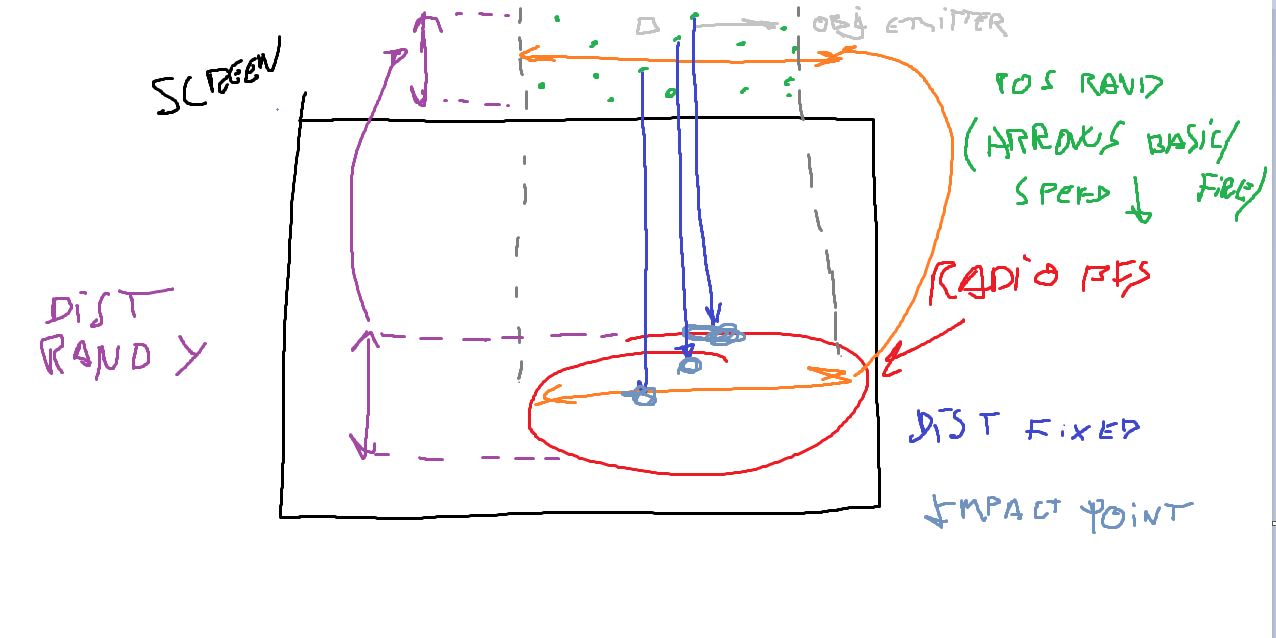 OBJ EMITTER
SCREEN
POS RAND
(ARROWS BASIC/
SPEED FIRE)
RADIO BFS
DIST
RAND Y
DIST FIXED
IMPACT POINT